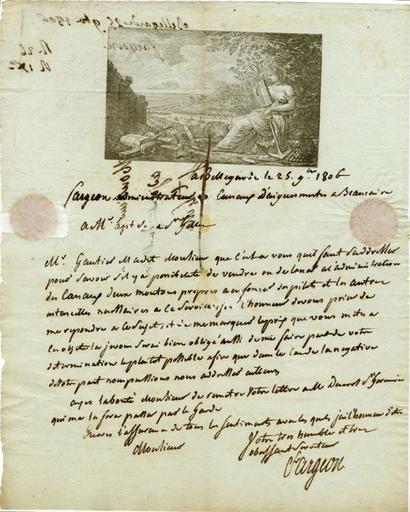 a Bellegarde le 25. 9bre 1806
Sargeon administrateur des Canaux d'aiguesmortes a Beaucaire
a Mr.
Mr. Gautier M'a dit Monsieur que c'est a vous qu'il faut s'addresser
pour savoir s'il y a possibilité de vendre ou de louer a l'administration
du Canal deux moutons propres a enfoncer des pilots et les autres
utencilles necessaires a ce Service; j'ai l'honneur de vous prier de
me repondre a ce Sujet, et de me marquer le prix que vous mettés a
cet objet. Je vous serai bien obligé aussi de me faire part de votre
determination le plutot possible afin que dans le cas de la negative
de votre part nous puissions nous addresser ailleurs
ayez la bonté Monsieur de remettre votre lettre a Mr
qui me la fera passer par le Garde
Recevez l'assurance de tous les Sentiments avec les quels j'ai l'honneur d'etre
Monsieur
Votre tres humble et tres
obeissant Serviteur
Sargeon